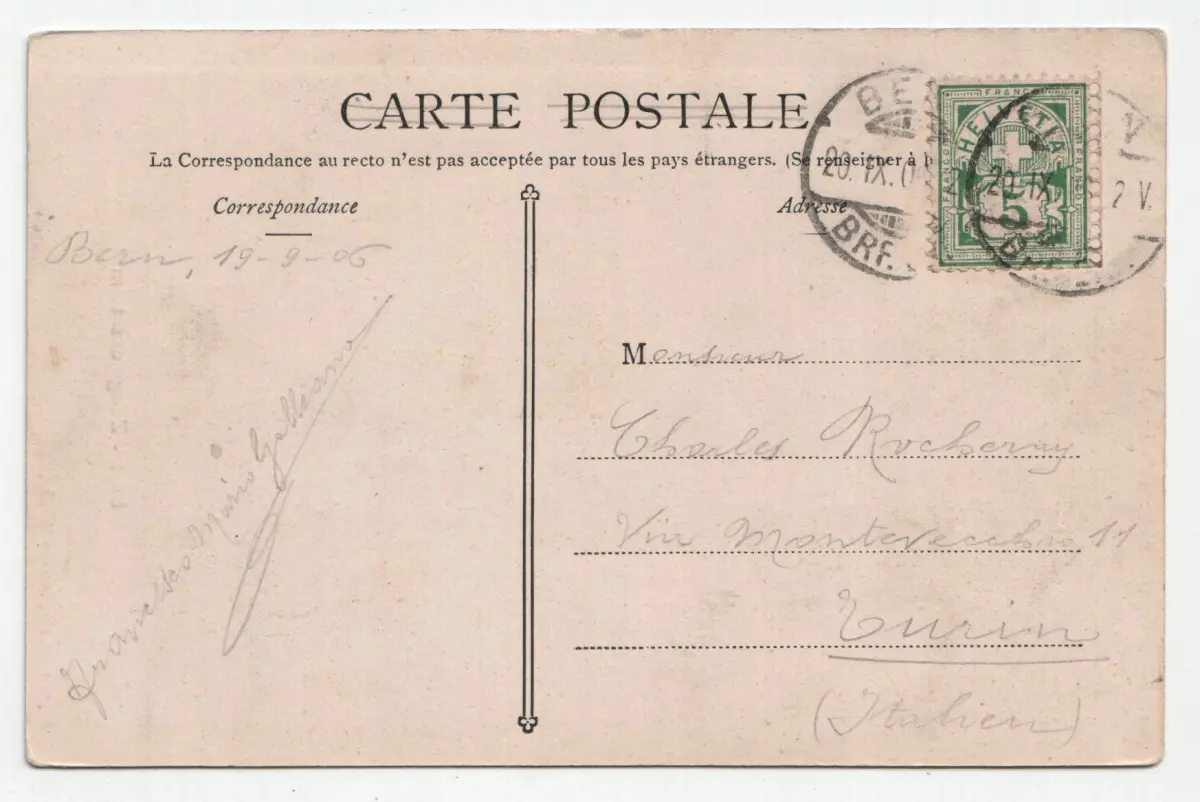 CARTE POSTALE
La Correspondance au recto n'est pas acceptée par tous les pays étrangers. (Se renseigner à
Correspondance
Adresse
BE
20. IX. 0
BRF.
FRANCO
HELVETIA
FRANCO
FRANCO
5
20. IX
V.
2 V.
Bern, 19-9-06
Francesco Mário Galliano
Monsieur
Charles
Via Montevecchio 11
Turin
(Italien)